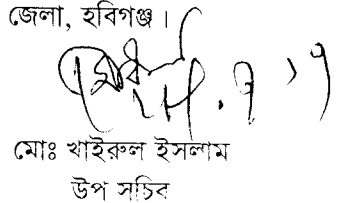 জেলা, হবিগঞ্জ।
মোঃ খাইরুল ইসলাম
উপ সচিব